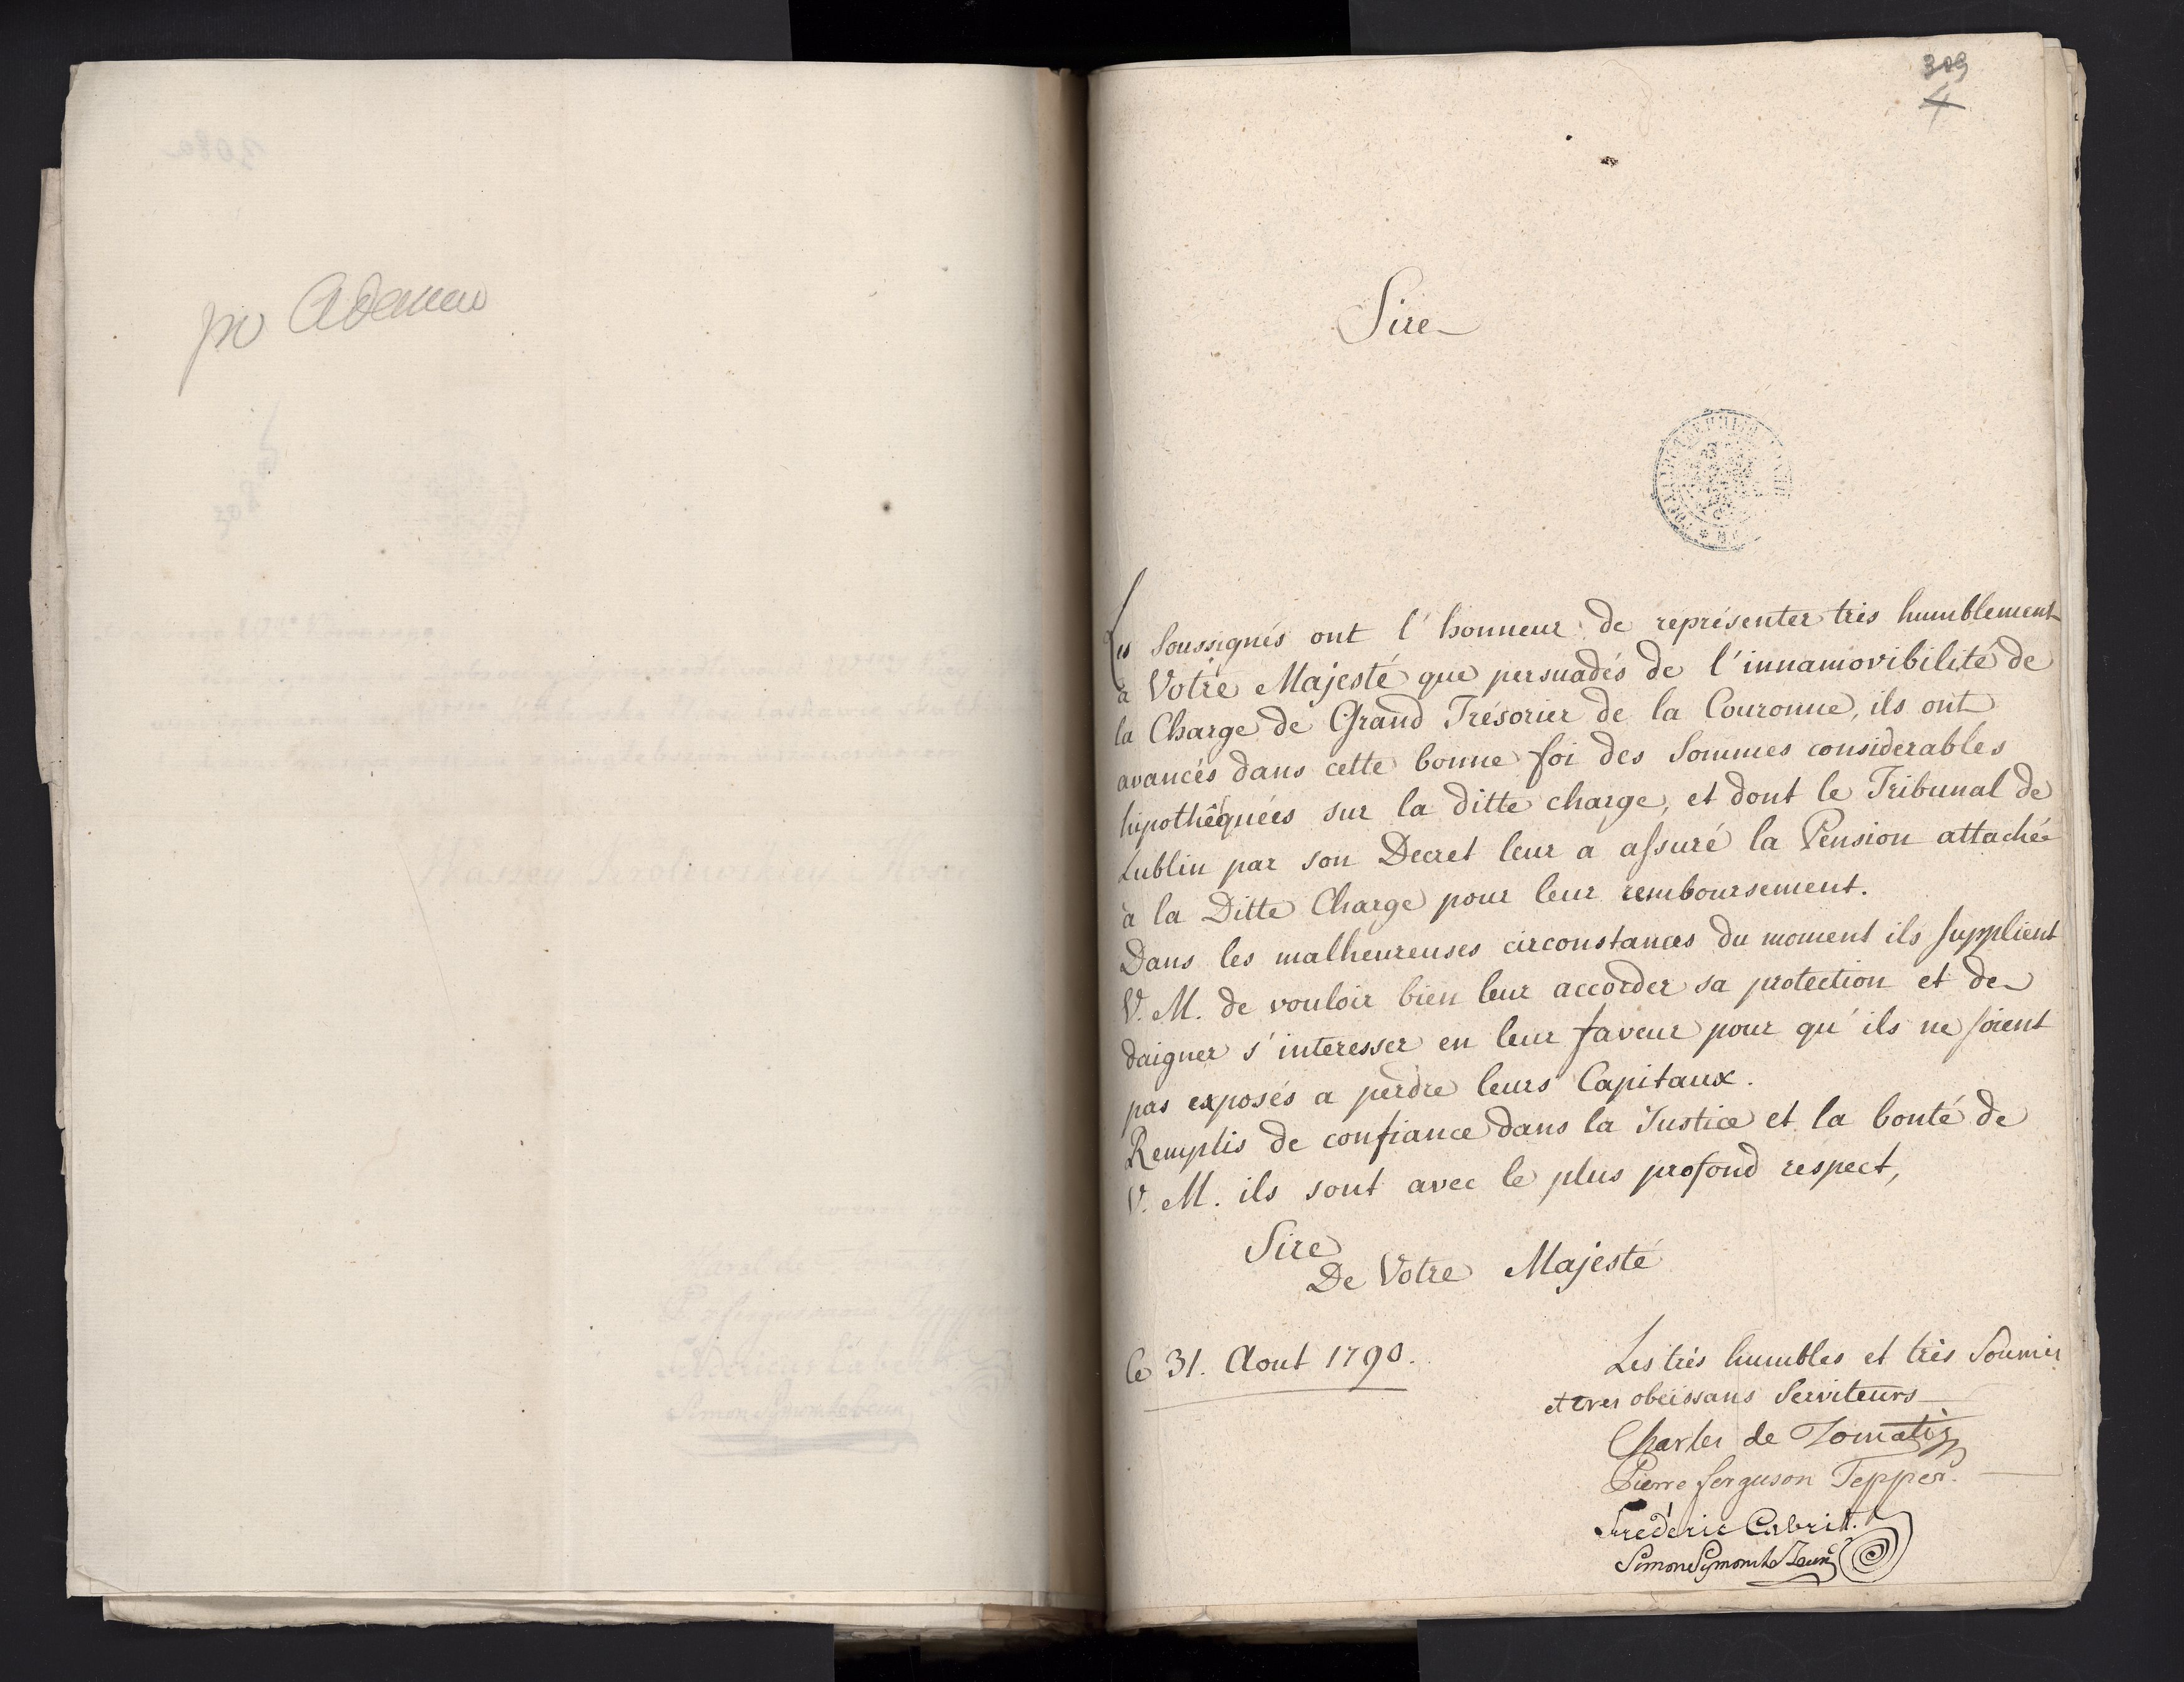 309
4
Sire
Les Soussignés ont l'honneur de représenter très humblement
à Votre Majesté que persuadés de l'innamovibilité de
la Charge de Grand Trésorier de la Couronne, ils ont
avancés dans cette bonne foi des Sommes considerables
hipothêquées sur la ditte charge, et dont le Tribunal de
Lublin par son Decret leur a assuré la Pension attachée
à la Ditte Charge pour leur remboursement.
Dans les malheureuses circonstances du moment ils supplient
V. M. de vouloir bien leur accorder sa protection et de
daigner s'interesser en leur faveur pour qu'ils ne soient
pas exposés a perdre leurs Capitaux.
Remplis de confiance dans la Justice et la bonté de
V. M. ils sont avec le plus profond respect,
Sire
De Votre Majesté
le 31. Aout 1790.
Les très humbles et très Soumis
et tres obeissans Serviteurs
Charles de Tomatis
Pierre ferguson Tepper.
Frédéric Cabrit.
Simon Symon